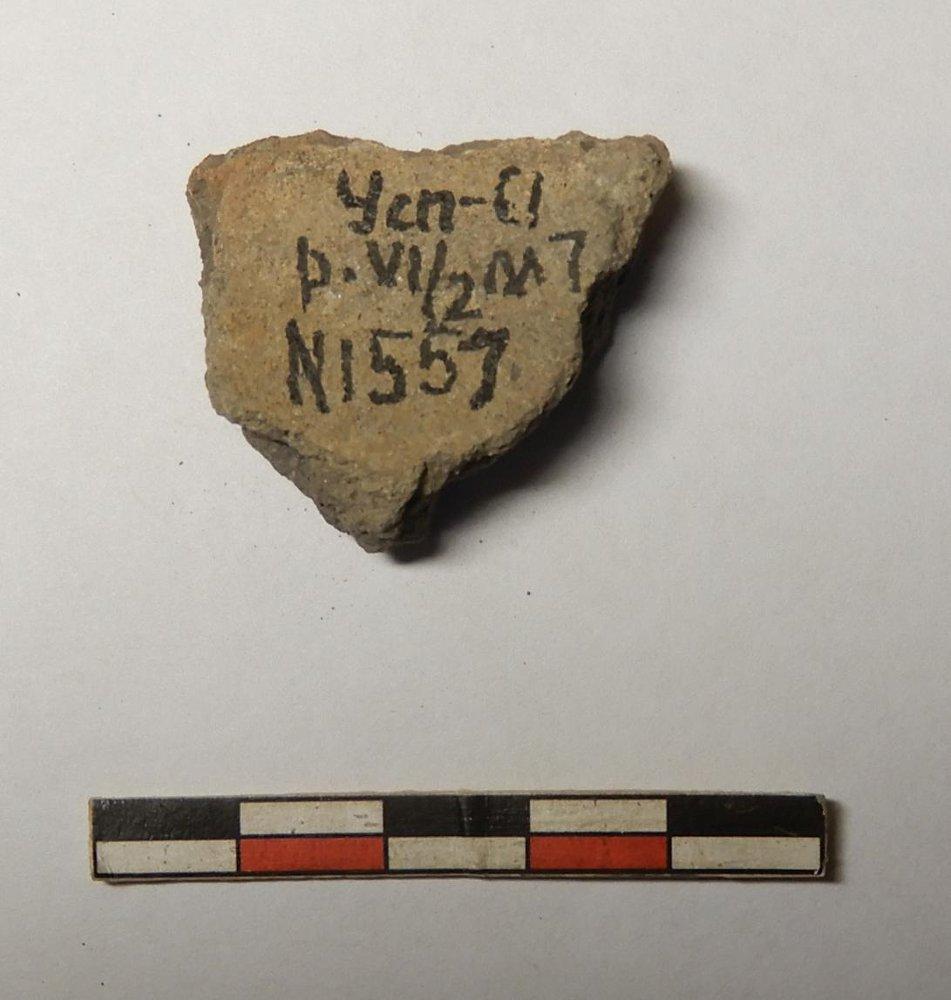 Усп-61
р.VI/2 м7
N1557